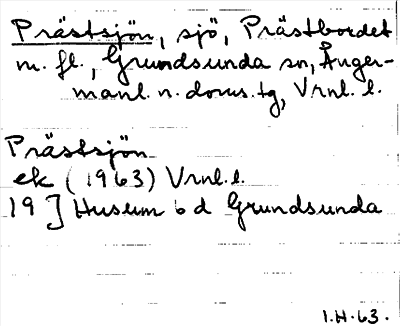 Prästsjön, sjö, Prästbordet
m. fl., Grundsunda sn, Ånger-
manl. n. doms. tg, Vrnl. l.
Prästsjön
ek (1963) Vrnl. l.
19] Husum 6 d Grundsunda
I.H.63.